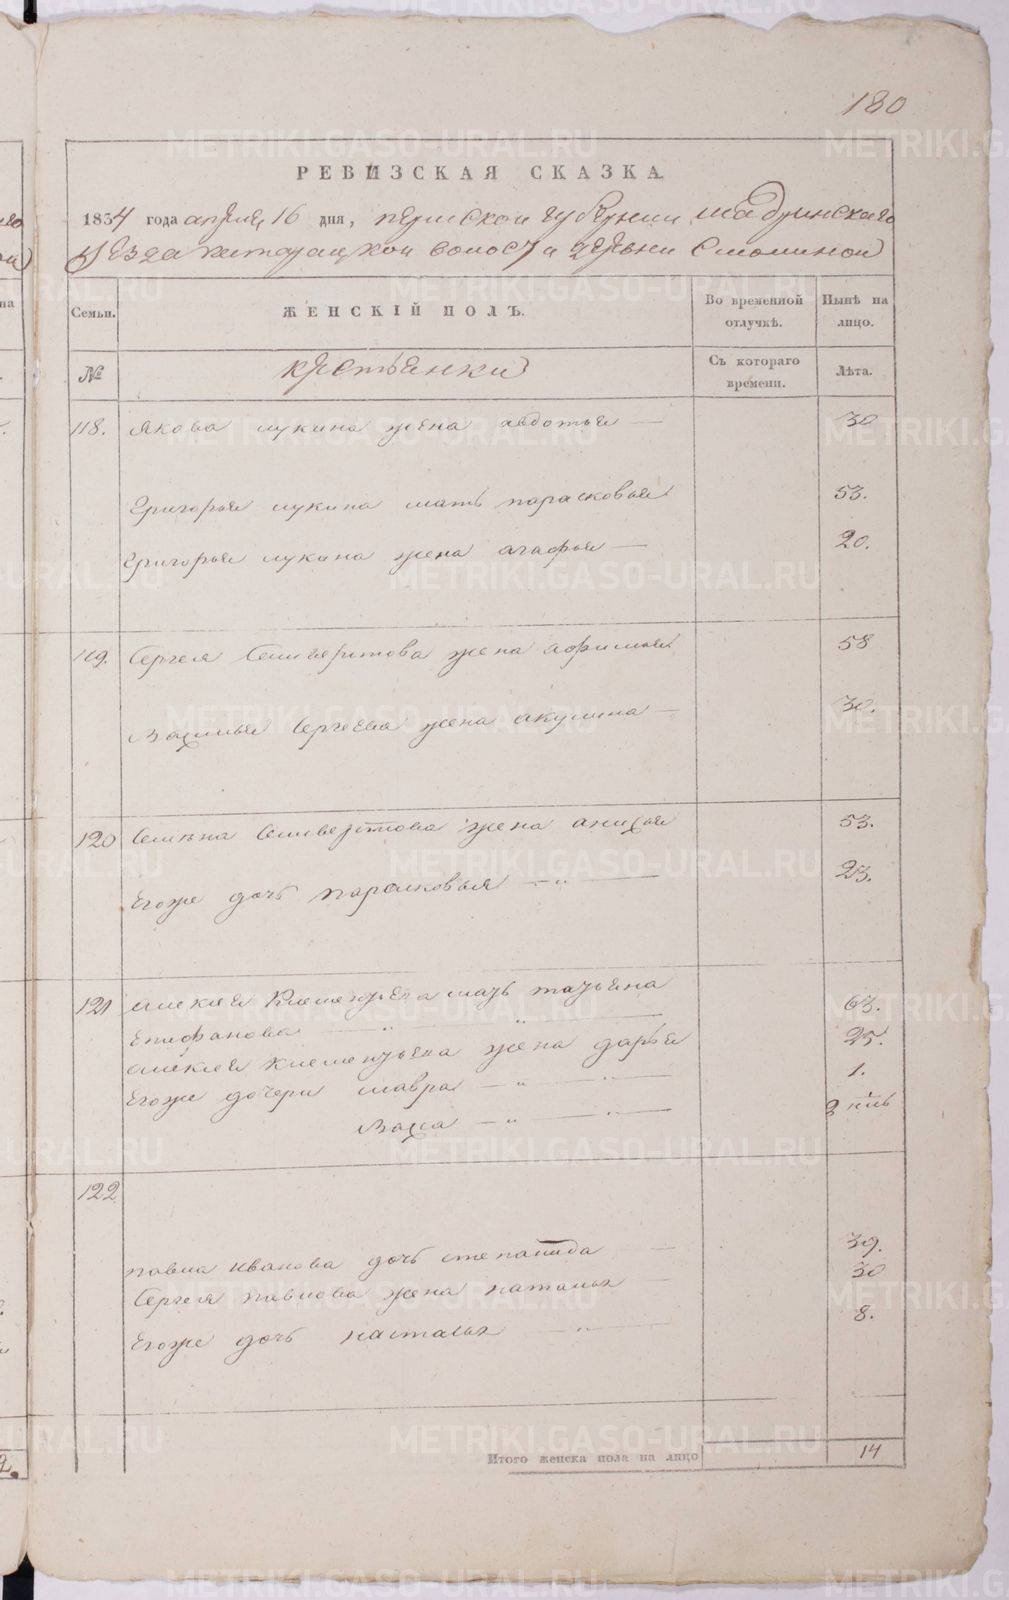 180
РЕВИЗСКАЯ СКАЗКА.
1834 года апреля 16 дня, пермской губернии шадринскаго
уезда катайцкой волости деревни Смолиной
Семьи.
ЖЕНСКІЙ ПОЛЪ.
Во временной отлучкѣ.
Нынѣ на лицо.
№
крестьянки
Съ котораго времени.
Лѣта.
118. Якова лукина жена авдотья — 30
Григорья лукина мать парасковья 53.
Григорья лукина жена агафья — 20.
119. Сергея Селиверстова жена афимья 58
Василья Сергеева жена акулина — 30.
120 Семена Селиверстова жена анисья 53.
Егоже дочь парасковья — „ — 23.
121 алексея Клементьева мать татьяна 63.
Епифанова — „ — „ —
алексея Клементьева жена дарья 25.
Егоже дочери мавра — „ — „ — 1.
Васса — „ — „ —
122
павла Иванова дочь степанида — 39.
Сергея павлова жена наталья — 30
Егоже дочь настасья — „ — 8.
Итого женска пола на лицо 14
METRIKI.GASO-URAL.RU